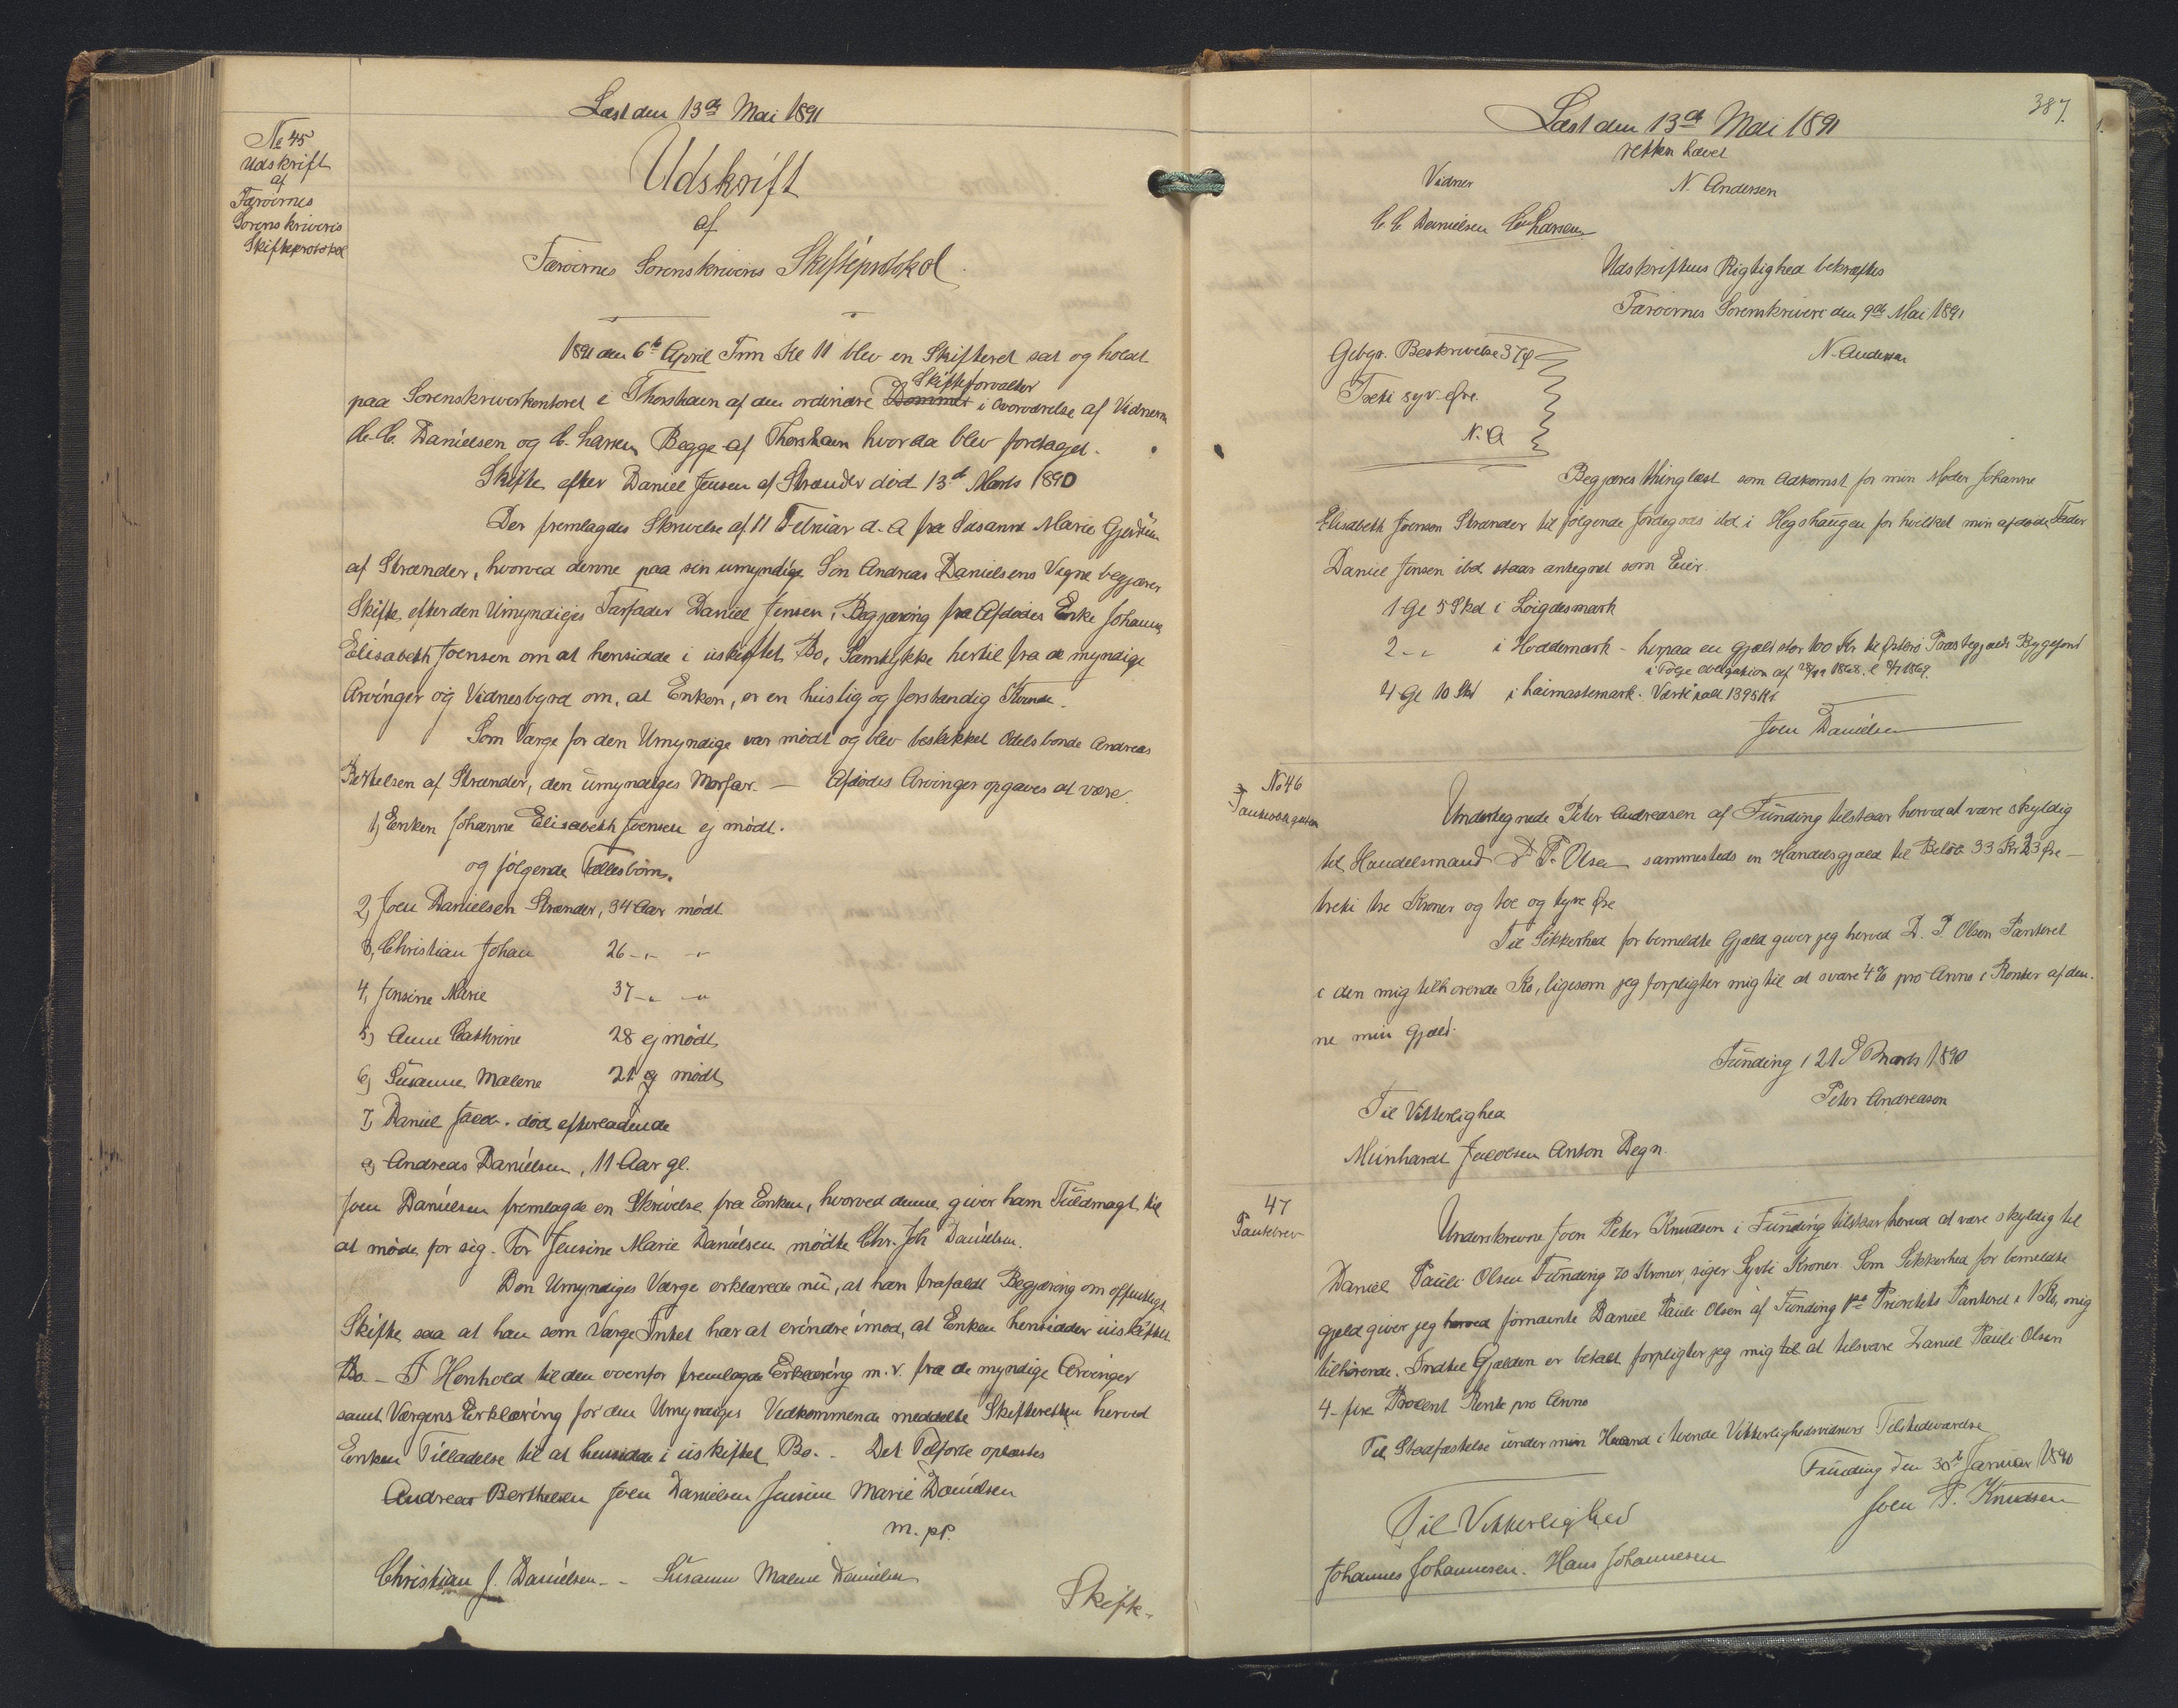 Læst den 13de Mai 1891
No 45
Udskrift
af
Færøernes
Sorenskriveris
Skifteprotokol
Udskrift
af
Færøernes Sorenskriveris Skifteprotokol
1891 den 6te April Frm Kl 11 blev en Skifteret sat og holdt
Skifteforvalter
paa Sorenskriverkontoret i Thorshavn af den ordinære Dommer i Overværelse af Vidnerne
C. C. Danielsen og C. Larsen Begge af Thorshavn hvor da blev foretaget.
Skifte efter Daniel Jensen af Strænder død 13de Marts 1890
Der fremlagdes Skrivelse af 11 Februar d. A fra Susanne Marie
af Strænder, hvorved denne paa sin umyndige Søn Andreas Danielsens Vegne begjærer
Skifte efter den Umyndiges Farfader Daniel Jensen, Begjæring fra Afdødes Enke Johanne
Elisabeth Joensen om at hensidde i uskiftet Bo, Samtykke hertil fra de myndige
Arvinger og Vidnesbyrd om, at Enken, er en huslig og forstandig Kvinde.
Som Værge for den Umyndige var mødt og blev beskikket Odelsbonde Andreas
Bertelsen af Strænder, den umyndiges Morfar. — Afdødes Arvinger opgaves at være.
1) Enken Johanne Elisabeth Joensen ej mødt.
og følgende Fællesbørn.
2) Joen Danielsen Strænder, 34 Aar mødt
3, Christian Johan 26 -„- -„-
4, Jensine Marie 37 -„- -„-
5) Anne Cathrine 28 ej mødt
6) Susanne Malene 21 ej mødt
7, Daniel Jacob. død, efterladende
a) Andreas Danielsen, 11 Aar gl.
Joen Danielsen fremlagde en Skrivelse fra Enken, hvorved denne giver ham Fuldmagt til
at møde for sig. For Jensine Marie Danielsen mødte Chr. Joh Danielsen.
Den Umyndiges Værge erklærede nu, at han frafaldt Begjæring om offentligt
Skifte, saa at han som Værge Intet har at erindre imod, at Enken hensidder i uskiftet
Bo. — I Henhold til den ovenfor fremlagde Erklæring m. v. fra de myndige Arvinger
samt Værgens Erklæring for den Umyndiges Vedkommende meddelte Skifteretten herved
Enken Tilladelse til at hensidde i uskiftet Bo. - Det Tilførte oplæstes
Andreas Berthelsen Joen Danielsen Jensine Marie Danielsen
m. p.
Christian J. Danielsen - - Susanne Malene Danielsen
Skifte-
387.
Læst den 13de Mai 1891
retten hævet
Vidner N. Andersen
C. C. Danielsen C. Larsen
Udskriftens Rigtighed bekræftes
Færøernes Sorenskriveri den 9de Mai 1891
N. Andersen
Gebyr. Beskrivelse 37 Ø
Treti syv Øre.
N. A
Begjæres thinglæst som Adkomst for min Moder Johanne
Elisabeth Joensen Strænder til følgende Jordegods ibd i Hegshaugen for hvilket min afdøde Fader
Daniel Jensen ibd staar antegnet som Eier.
1 Gl 5 Skd i Loigdesmark
2 - „ i Hoddemark - herpaa en Gjæld stor 100 Kr til Østerø Præstegjælds Byggefond
i Følge Obligation af 28/11 1868. l 8/7 1869.
4 Gl 10 Skd i haimastemark. Værdi ialt 1395 Kr.
Joen Danielsen
No 46
Panteobligation
Undertegnede Peter Andreasen af Funding tilstaar herved at være skyldig
til Handelsmand D. P. Olsen sammesteds en Handelsgjæld til Beløb 33 Kr 23 Øre —
treti tre Kroner og tre og tyve Øre
Til Sikkerhed for bemeldte Gjæld giver jeg herved D. P. Olsen Panteret
i den mig tilhørende Ko, ligesom jeg forpligter mig til at svare 4 % pro Anno i Renter af den-
ne min Gjæld.
Funding, 21de Marts 1890
Peter Andreasen
Til Vitterlighed
Meinhardt Jacobsen Anton Degn.
47
Pantebrev
Underskrevne Joen Peter Knudsen i Funding tilstaar herved at være skyldig til
Daniel Pauli Olsen Funding 70 Kroner, siger Syvti Kroner. Som Sikkerhed for bemeldte
Gjæld giver jeg herved fornævnte Daniel Pauli Olsen af Funding 1ste Prioritets Panteret i 1 Ko, mig
tilhørende. Indtil Gjælden er betalt forpligter jeg mig til at tilsvare Daniel Pauli Olsen
4 - fire Procent Rente pro Anno
Til Stadfæstelse under min Haand i tvende Vitterlighedsvidners Tilstedeværelse
Funding den 30te Januar 1890
Joen P. Knudsen
Til Vitterlighed
Johannes Johannesen. Hans Johannesen